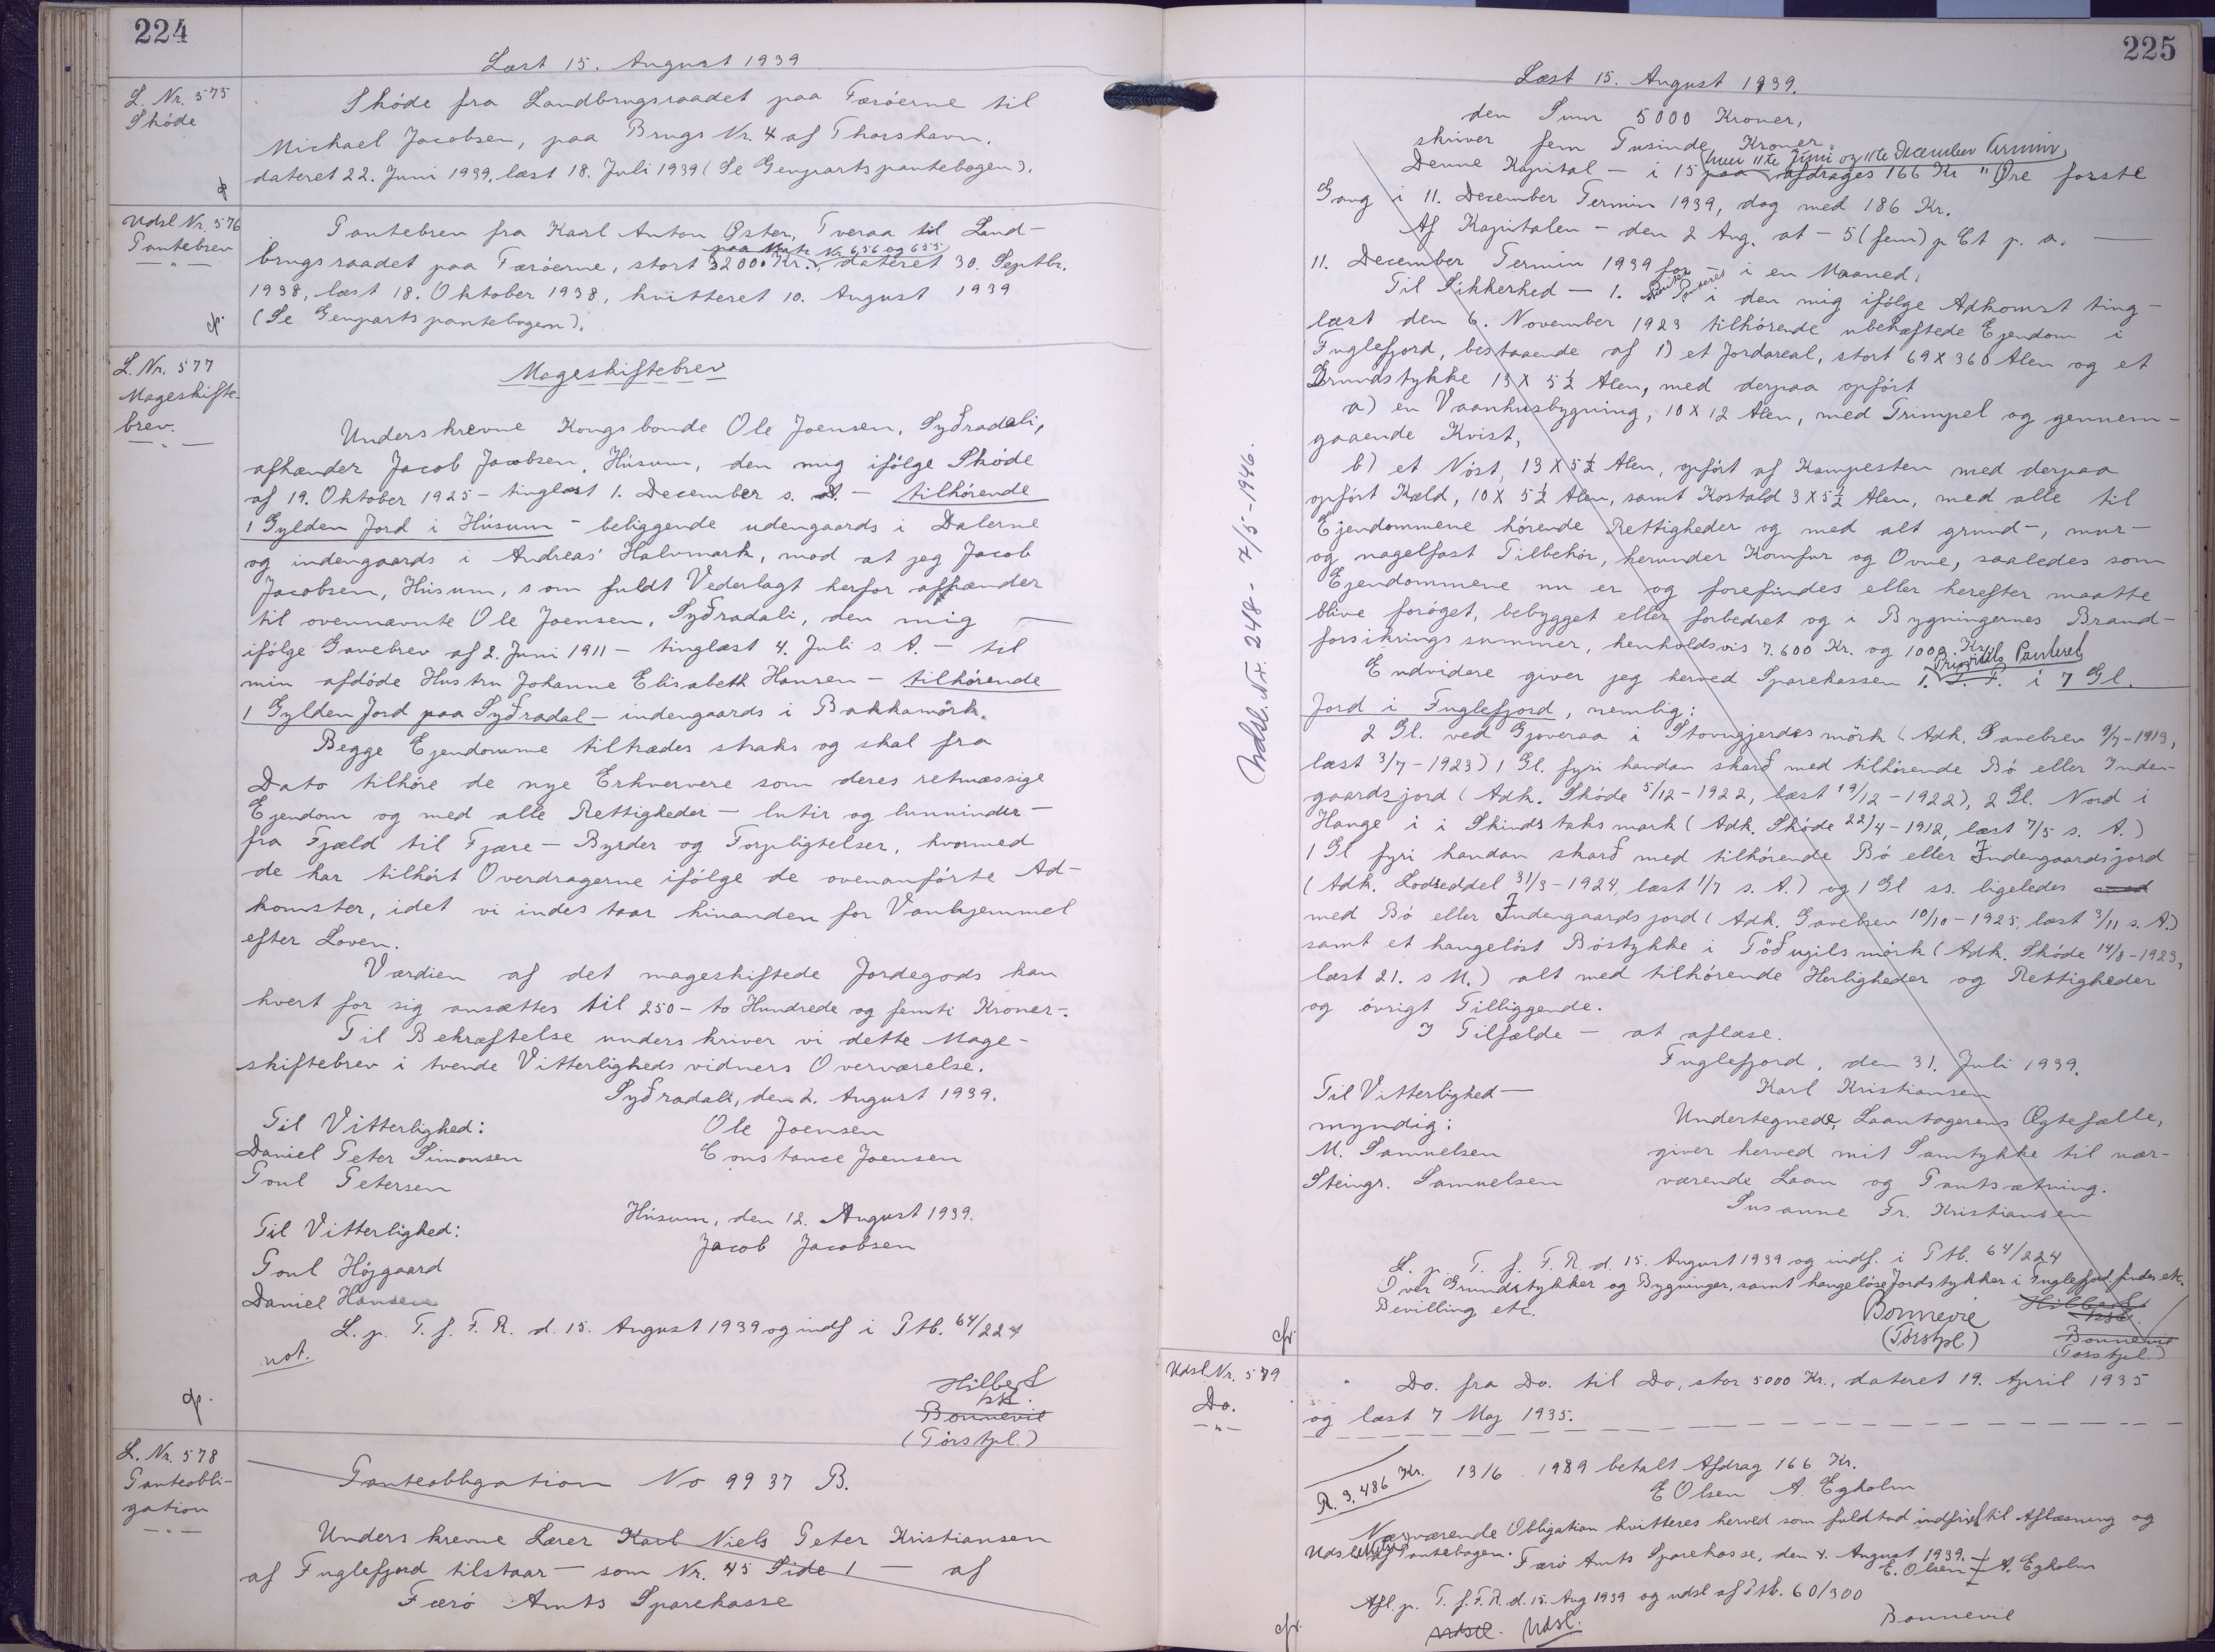 224
Læst 15. August 1939
L. Nr. 575
Skøde
Skøde fra Landbrugsraadet paa Færøerne til
Michael Jacobsen, paa Brugs Nr. 4 af Thorshavn.
dateret 22. Juni 1939, læst 18. Juli 1939 (Se Genpartspantebogen).
Udsl Nr. 576
Pantebrev
Pantebrev fra Karl Anton Øster, Tveraa til Land-
paa Matr. Nr. 656 og 655
brugsraadet paa Færøerne, stort 3200 Kr., dateret 30. Septbr.
1938, læst 18. Oktober 1938, kvitteret 10. August 1939
(Se Genpartspantebogen).
L. Nr. 577
Mageskifte-
brev.
Mageskiftebrev
Underskrevne Kongsbonde Ole Joensen, Syðradali,
afhænder Jacob Jacobsen, Húsum, den mig ifølge Skøde
af 19. Oktober 1925 - tinglæst 1. December s. A. - tilhørende
1 Gylden Jord i Húsum - beliggende udengaards i Dalerne
og indengaards i Andreas' Halvmark, mod at jeg Jacob
Jacobsen, Húsum, som fuldt Vederlagt herfor afhænder
til ovennævnte Ole Joensen, Syðradali, den mig
ifølge Gavebrev af 2. Juni 1911 - tinglæst 4. Juli s. A. - til
min afdøde Hustru Johanne Elisabeth Hansen - tilhørende
1 Gylden Jord paa Syðradal - indengaards i Bakkamørk.
Begge Ejendomme tiltrædes straks og skal fra
Dato tilhøre de nye Erhververe som deres retmæssige
Ejendom og med alle Rettigheder - lutir og lunnindir -
fra Fjæld til Fjære - Byrder og Forpligtelser, hvormed
de har tilhørt Overdragerne ifølge de ovenanførte Ad-
komster, idet vi indestaar hinanden for Vanhjemmel
efter Loven.
Værdien af det mageskiftede Jordegods kan
hvert for sig ansættes til 250 - to Hundrede og femti Kroner -.
Til Bekræftelse underskriver vi dette Mage-
skiftebrev i tvende Vitterlighedsvidners Overværelse.
Syðradali, den 2. August 1939.
Til Vitterlighed: Ole Joensen
Daniel Peter Simonsen Constance Joensen
Poul Petersen
Húsum, den 12. August 1939.
Til Vitterlighed: Jacob Jacobsen
Poul Højgaard
Daniel Hansen
L. p. T. f. F. R. d. 15. August 1939 og indf i Ptb. 64/224
not.
Hilbert
kst.
Bonnevie
(Torstpl.)
L. Nr. 578
Panteobli-
gation
Panteobligation No 9937 B.
Underskrevne Lærer Karl Niels Peter Kristiansen
af Fuglefjord tilstaar - som Nr. 45 Side 1 - af
Færø Amts Sparekasse
225
Læst 15. August 1939.
den Sum 5000 Kroner,
skriver fem Tusinde Kroner.
hver 11te Juni og 11te December Termin
Denne Kapital - i 15 paa afdrages 166 Kr " Øre første
Gang i 11. December Termin 1939, dog med 186 Kr.
Af Kapitalen - den 2 Aug. at - 5 (fem) p Ct p. a.
11. December Termin 1939 for - i en Maaned.
Til Sikkerhed - 1. Prioritets Panteret i den mig ifølge Adkomst ting-
læst den 6. November 1923 tilhørende ubehæftede Ejendom i
Fuglefjord, bestaaende af 1) et Jordareal, stort 69 x 360 Alen og et
Grundstykke 13 x 5½ Alen, med derpaa opført
a) en Vaanhusbygning, 10 x 12 Alen, med Trimpel og gennem-
gaaende Kvist,
b) et Nøst, 13 x 5½ Alen, opført af Kampesten med derpaa
opført Kæld, 10 x 5½ Alen, samt Kostald 3 x 5½ Alen, med alle til
Ejendommene hørende Rettigheder og med alt grund-, mur-
og nagelfast Tilbehør, herunder Komfur og Ovne, saaledes som
Ejendommene nu er og forefindes eller herefter maatte
blive forøget, bebygget eller forbedret og i Bygningernes Brand-
forsikringssummer, henholdsvis 7.600 Kr. og 1000. Kr.
Prioritets Panteret
Endvidere giver jeg herved Sparekassen 1. P. P. i 7 Gl.
Jord i Fuglefjord, nemlig:
2 Gl. ved Gjoveraa i Stovugjerdes mørk (Adk. Gavebrev 9/7-1913,
læst 3/7-1923) 1 Gl. fyri handan skarð med tilhørende Bø eller Inden-
gaardsjord (Adk. Skøde 5/12-1922, læst 19/12-1922), 2 Gl. Nord i
Hauge i i Skindstaks mark (Adk. Skøde 22/4-1912, læst 7/5 s. A.)
1 Gl fyri handan skarð med tilhørende Bø eller Indengaardsjord
(Adk. Lodseddel 31/3-1924, læst 1/7 s. A.) og 1 Gl ss. ligeledes
med Bø eller Indengaardsjord (Adk. Gavebrev 10/10-1925, læst 3/11 s. A.)
samt et haugeløst Bøstykke i Tøðugils mørk (Adk. Skøde 14/8-1923,
læst 21. s M.) alt med tilhørende Herligheder og Rettigheder
og øvrigt Tilliggende.
I Tilfælde - at aflæse.
Fuglefjord, den 31. Juli 1939.
Til Vitterlighed - Karl Kristiansen
myndig: Undertegnede, Laantagerens Ægtefælle,
M. Samuelsen giver herved mit Samtykke til nær-
Steingr. Samuelsen værende Laan og Pantsætning.
Susanne Fr. Kristiansen
L. p. T. f. F. R. d. 15. August 1939 og indf. i Ptb. 64/224
Over Grundstykker og Bygninger, samt haugeløse Jordstykker i Fuglefjord findes etc.
Bevilling etc.
Bonnevie
(Torstpl)
Hilbert
kst.
Bonnevie
(Torstpl.)
Udsl. Nr. 248 - 7/5-1946.
Udsl Nr. 579
Do.
Do. fra Do. til Do, stor 5000 Kr., dateret 19. April 1935
og læst 7 Maj 1935.
R. 3.486 Kr. 13/6 1939 betalt Afdrag 166 Kr.
E Olsen A. Egholm
Nærværende Obligation kvitteres herved som fuldtud indfriet til Aflæsning og
Udslettelse af Pantebogen. Færø Amts Sparekasse, den 4. August 1939.
E. Olsen A. Egholm
Afl. p. T. f. F. R. d. 15. Aug 1939 og udsl af Ptb. 60/300
Bonnevie
Udsl. Udsl.